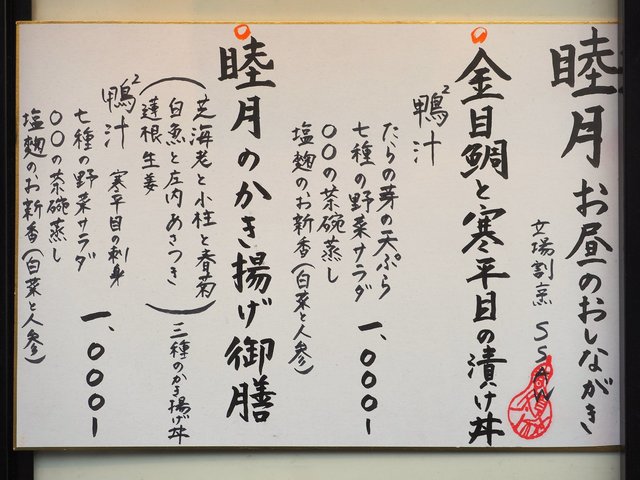 睦月お昼のおしながき
立場割烹 SSAW
金目鯛と寒平目の漬け丼
鴨2汁
たらの芽の天ぷら
七種の野菜サラダ
〇〇の茶碗蒸し
塩麹のお新香(白菜と人参)
一、〇〇〇ー
睦月のかき揚げ御膳
(芝海老と小柱と春菊
白魚と庄内あさつき
蓮根生姜)
三種のかき揚げ丼
鴨2汁
寒平目の刺身
七種の野菜サラダ
〇〇の茶碗蒸し
塩麹のお新香(白菜と人参)
一、〇〇〇ー